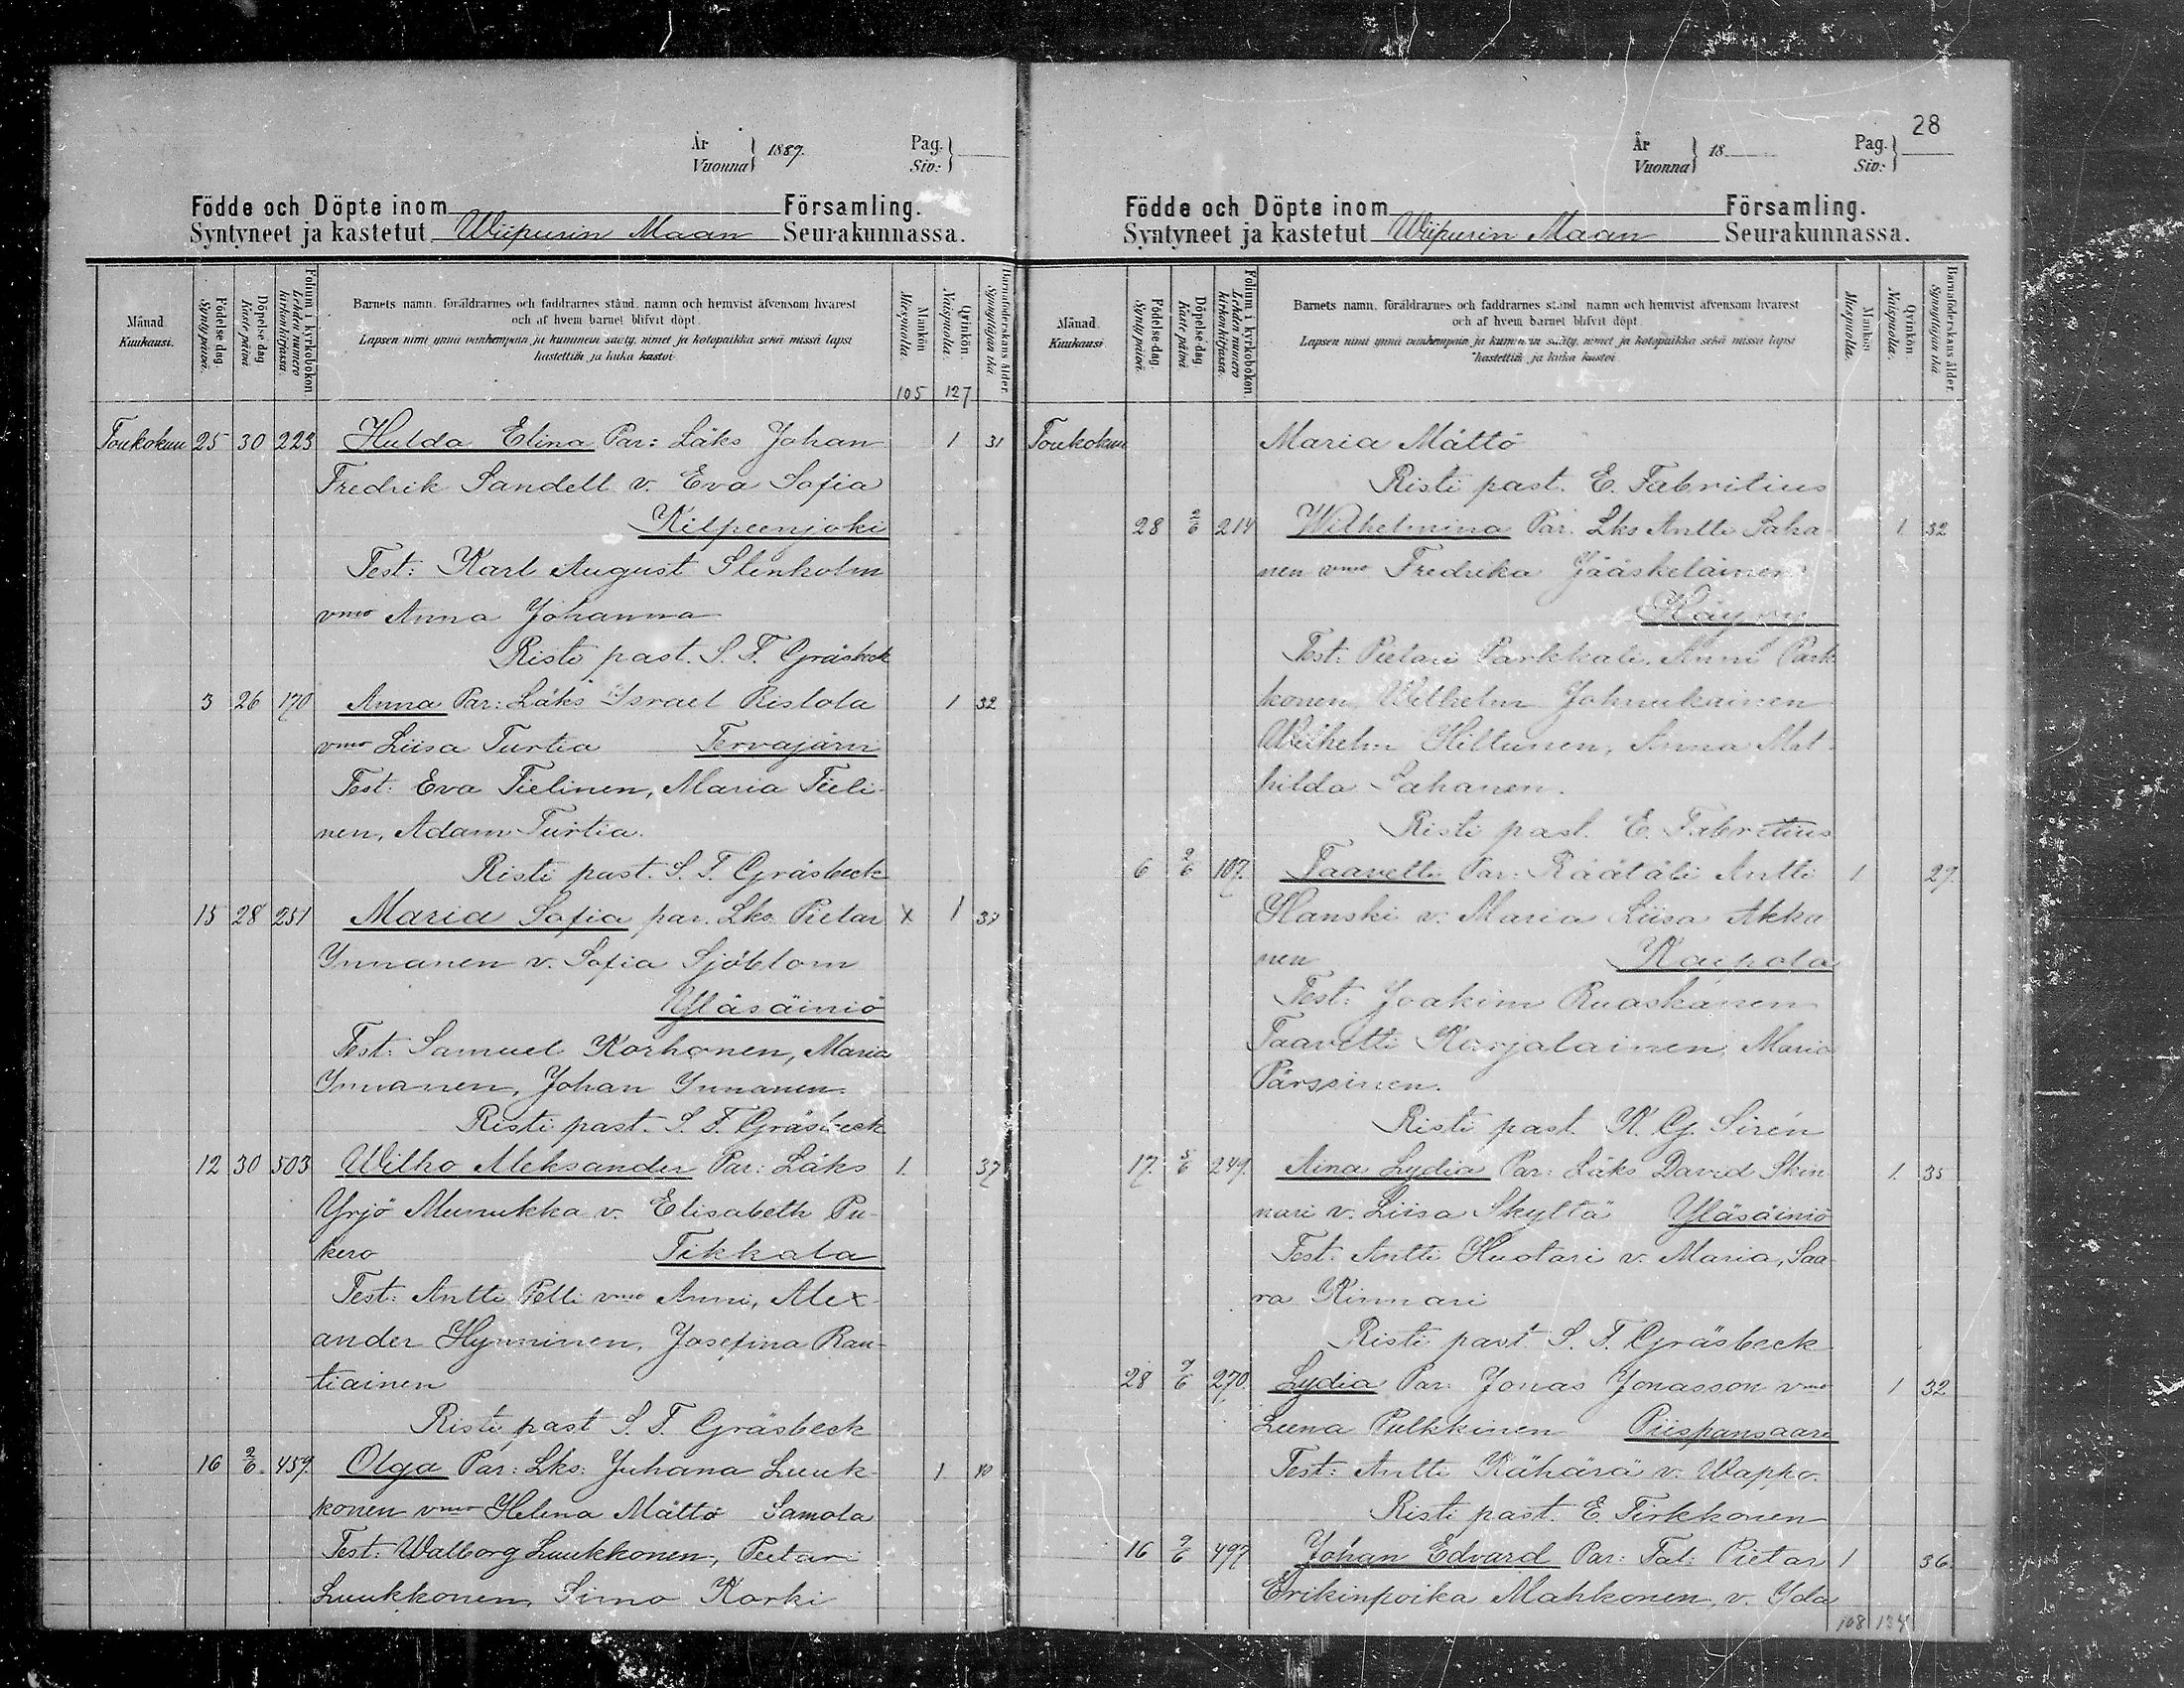 År
Vuonna 1887.
Pag.
Siv:
Födde och Döpte inom Församling.
Syntyneet ja kastetut Wiipurin Maan Seurakunnassa.
Månad
Kuukausi.
Födelse dag.
Synty päivä.
Döpelse dag
Kaste päivä
Folium i kyrkobokon.
Lehden numero kirkonkirjassa.
Barnets namn, föräldrarnes och faddrarnes stånd, namn och hemvist äfvensom hvarest
och af hvem barnet blifvit döpt.
Lapsen nimi ynnä vanhempain ja kummein sääty, nimet ja kotopaikka sekä missä lapsi
kastettiin ja kuka kastoi.
Mankön
Miespuolia.
Qvinkön
Naispuolia.
Barnaföderskans ålder.
Synnyttäjän ikä
105 127
Toukokuu 25 30 223 Hulda Elina Par: Läks Johan 1 31
Fredrik Sandell v. Eva Sofia
Kilpeenjoki
Test: Karl August Stenholm
vmo Anna Johanna
Risti past. S. T. Gräsbeck
3 26 170 Anna Par: Läks Israel Ristola 1 32
vmo Liisa Turtia Tervajärvi
Test: Eva Tielinen, Maria Tieli-
nen, Adam Turtia.
Risti past. S. T. Gräsbeck
15 28 251 Maria Sofia par. Lks. Pietar x 1 37
Ynnanen v. Sofia Sjöblom
Yläsäiniö
Test: Samuel Korhonen, Maria
Ynnanen, Johan Ynnanen.
Risti past. S. T. Gräsbeck
12 30 503 Wilho Aleksander Par: Läks 1. 37
Yrjö Munukka v. Elisabeth Pu-
kero Tikkala
Test: Antti Pelli vmo Anni, Alex-
ander Hynninen, Josefina Rau-
tiainen
Risti past S. T. Gräsbeck
16 2/6. 459. Olga Par: Lks: Juhana Luuk- 1 40
konen vmo Helena Mättö Samola
Test: Walborg Luukkonen, Pietari
Luukkonen, Simo Korki
28
År
Vuonna 18
Pag.
Siv:
Födde och Döpte inom Församling.
Syntyneet ja kastetut Wiipurin Maan Seurakunnassa.
Månad
Kuukausi
Födelse dag.
Synty päivä.
Döpelse dag.
Kaste päivä
Folium i kyrkobokon
Lehden numero kirkonkirjassa.
Barnets namn, föräldrarnes och faddrarnes stånd namn och hemvist äfvensom hvarest
och af hvem barnet blifvit döpt.
Lapsen nimi ynnä vanhempain ja kummein sääty, nimet ja kotopaikka sekä missä lapsi
kastettiin ja kuka kastoi
Mankön
Miespuolia.
Qvinkön
Naispuolia.
Barnaföderskans ålder.
Synnyttäjän ikä
Toukokuu Maria Mättö
Risti past. E. Fabritius
28 2/6 214 Wilhelmina Par. Lks Antti Saha- 1 32
nen vmo Fredrika Jääskeläinen
Käyry
Test: Pietari Parkkali, Anni Park-
konen, Wilhelm Johnukainen
Wilhelm Hiltunen, Anna Mat-
hilda Sahanen.
Risti past. E. Fabritius
6 2/6 107. Taavetti Par: Räätäli Antti 1 27.
Hanski v. Maria Liisa Akka-
nen Kaipola
Test: Joakim Ruaskanen
Taavetti Karjalainen, Maria
Pärssinen.
Risti past K. G. Sirén
17. 5/6 249. Aina Lydia Par: Läks David Skin- 1. 35
nari v. Liisa Skyttä Yläsäiniö
Test. Antti Huotari v. Maria, Saa-
ra Kinnari
Risti past S. T. Gräsbeck
28 9/6 270. Lydia Par: Jonas Jonasson vmo 1 32
Leena Pulkkinen Piispansaari
Test: Antti Kähärä v. Wappo.
Risti past. E. Tirkkonen
16 9/6 497 Johan Edvard Par: Tal: Pietar 1 36.
Erikinpoika Mahkonen, v. Ida
108 134